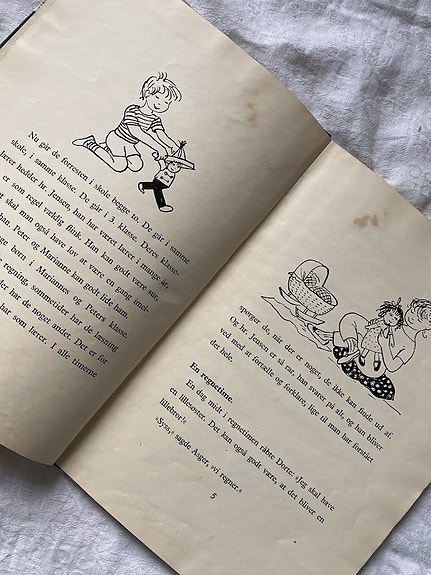 Nu går de forresten i skole begge to. De går i samme
skole, i samme klasse. De går i 3. klasse. Deres klasse-
lærer hedder hr. Jensen, han har været lærer i mange år,
er som regel vældig flink. Han kan godt være sur,
skal man også have lov at være en gang imel-
Peter og Marianne kan godt lide ham.
i Mariannes og Peters klasse.
regning, sommetider har de læsning
har de noget andet. Det er for
har som lærer. I alle timerne
spørger de, når der er noget, de ikke kan finde ud af.
Og hr. Jensen er så rar, han svarer på alt, og han bliver
ved med at fortælle og forklare, lige til man har forstået
det hele.
En regnetime.
En dag midt i regnetimen råbte Dorte: »Jeg skal have
en lillesøster. Det kan også godt være, at det bliver en
lillebror!«
»Syss,« sagde Asger, »vi regner.«
5